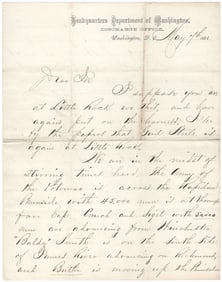 Headquarters Department of Washington,
ORDNANCE OFFICE,
Washington, D. C. May 7th 186
Dear Sir
I suppose you are
at Little Rock and have
again put on the harness. I see
by the papers that Genl Steele is
again at Little Rock.
We are in the midst of
stirring times here. The Army of
the Potomac is across the Rapidan
Burnside with 45,000 men is at
Couch and Sigel with
men are advancing from Winchester
"Baldy" Smith is on the South Side
of James River advancing on Richmond,
and Butler is moving up the Peninsula